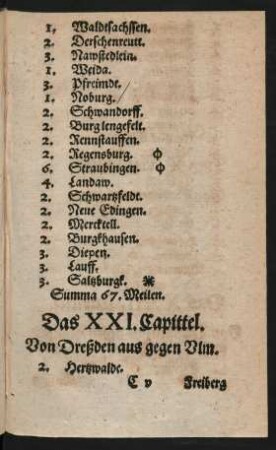 1. Waldtsachssen.
2. Derschenreutt.
3. Nawstedlein.
1. Weida.
3. Pfreimdt.
1. Noburg.
2. Schwandorff.
2. Burglengefelt.
2. Rennstauffen.
2. Regensburg. ⌽
6. Straubingen. ⌽
4. Landaw.
2. Schwartzfeldt.
2. Neue Edingen.
2. Mercktell.
2. Burgkhausen.
3. Diepen.
3. Lauff.
3. Saltzburgk. ⁜
Summa 67. Meilen.
Das XXI. Capittel.
Von Dreßden aus gegen Vlm.
2. Hertzwalde.
C v Freiberg